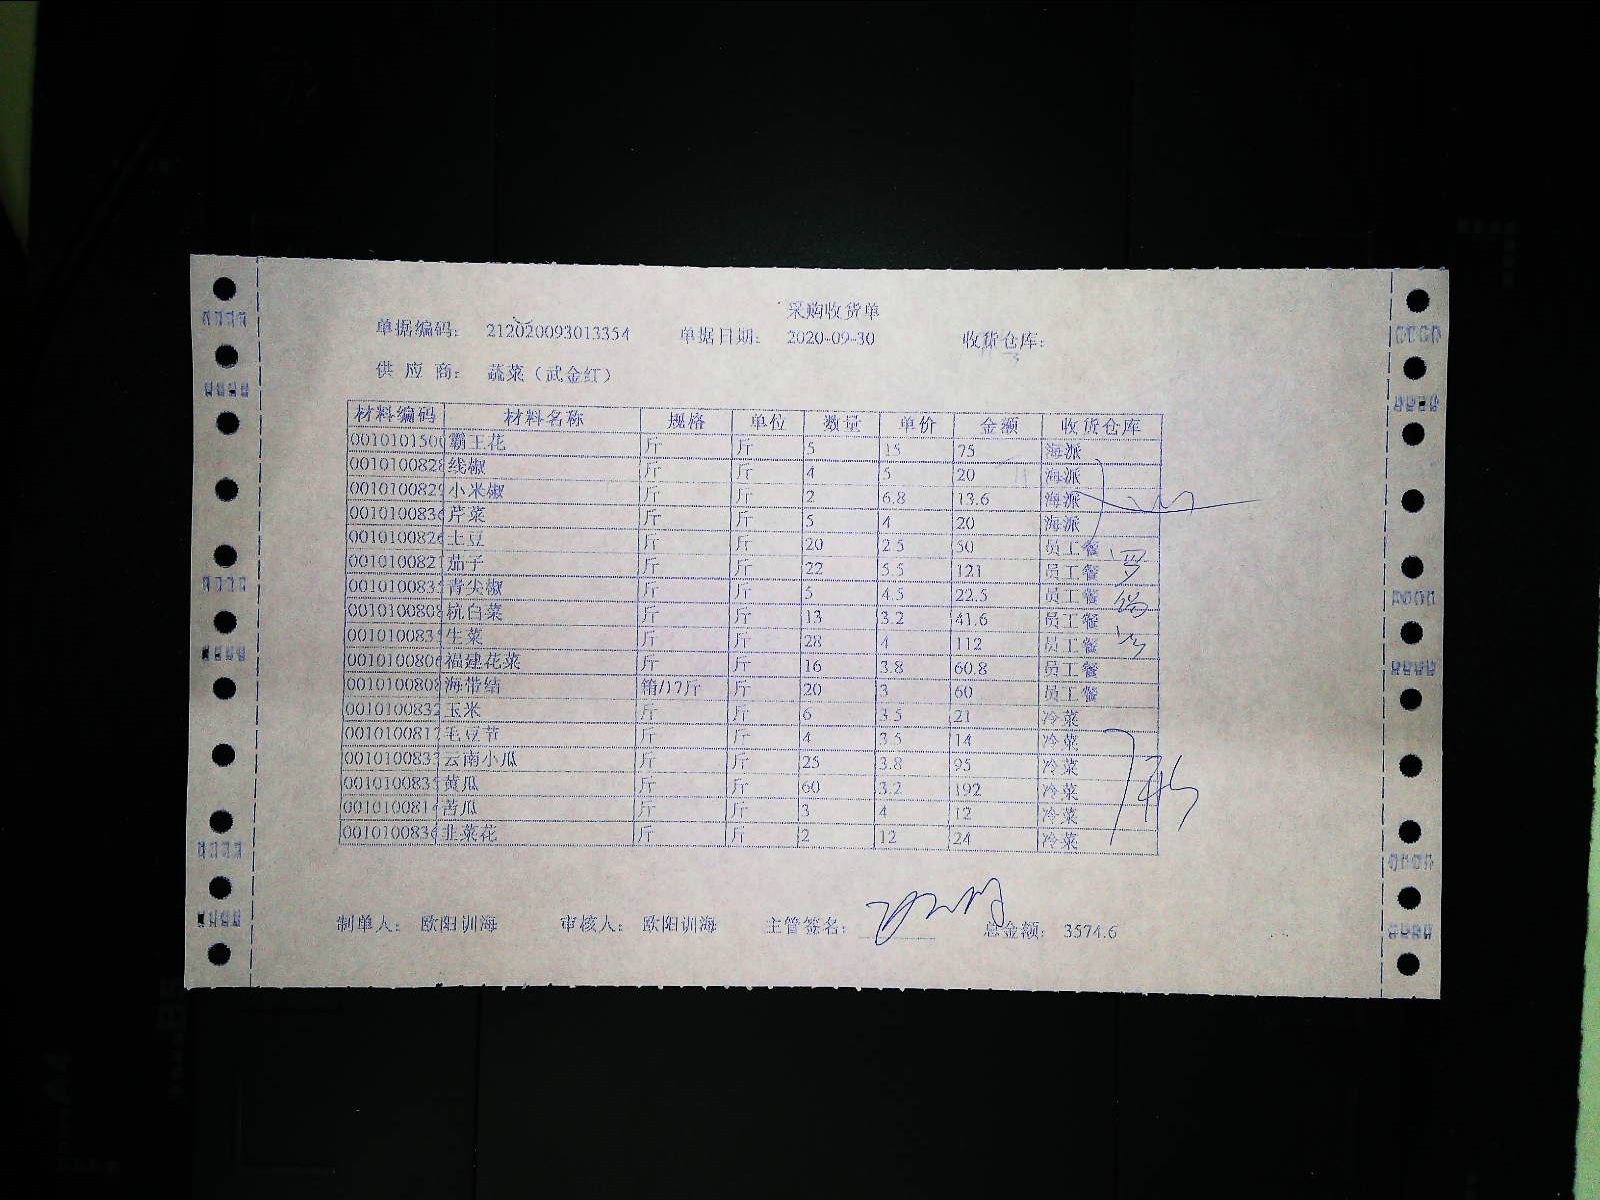 采购收货单
单据编码： 212020093013354 单据日期： 2020-09-30 收货仓库：
供 应 商： 蔬菜（武金红）
材料编码 材料名称 规格 单位 数量 单价 金额 收货仓库
0010101500 霸王花 斤 斤 5 15 75 海派
0010100828 线椒 斤 斤 4 5 20 海派
0010100829 小米椒 斤 斤 2 6.8 13.6 海派
0010100836 芹菜 斤 斤 5 4 20 海派
0010100826 土豆 斤 斤 20 2.5 50 员工餐
0010100821 茄子 斤 斤 22 5.5 121 员工餐
0010100835 青尖椒 斤 斤 5 4.5 22.5 员工餐
0010100808 杭白菜 斤 斤 13 3.2 41.6 员工餐
0010100835 生菜 斤 斤 28 4 112 员工餐
0010100806 福建花菜 斤 斤 16 3.8 60.8 员工餐
0010100808 海带结 箱/17斤 斤 20 3 60 员工餐
0010100832 玉米 斤 斤 6 3.5 21 冷菜
0010100817 毛豆节 斤 斤 4 3.5 14 冷菜
0010100835 云南小瓜 斤 斤 25 3.8 95 冷菜
0010100835 黄瓜 斤 斤 60 3.2 192 冷菜
0010100814 苦瓜 斤 斤 3 4 12 冷菜
0010100836 韭菜花 斤 斤 2 12 24 冷菜
制单人： 欧阳训海 审核人： 欧阳训海 主管签名： 总金额： 3574.6